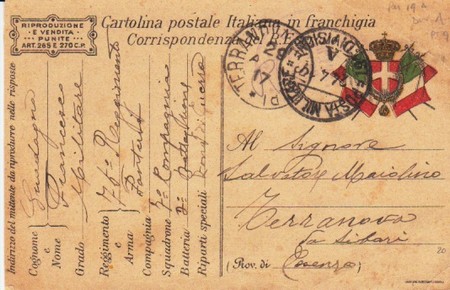 RIPRODUZIONE
E VENDITA
PUNITE
ART. 285 E 270 C.P.
Cartolina postale Italiana in franchigia
Corrispondenza
POSTA MILITARE
Indirizzo del mittente da riprodurre nelle risposte
Cognome
e
Nome
Francesco
Grado Militare
Reggimento 75° Reggimento
e
Arma Fanteria
Compagnia 7ª Compagnia
Squadrone
Batteria 2° Battaglione
Riparti speciali Zona di guerra
Al Signore
Salvatore Maiolino
Terranova
da Sibari
(Prov. di Cosenza)
20